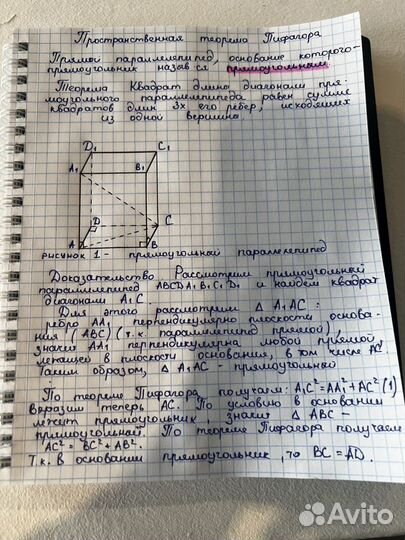 Пространственная теорема Пифагора
Прямой параллелепипед, основание которого-
прямоугольник назыв-ся прямоугольным.
Теорема Квадрат длины диагонали пря-
моугольного параллелепипеда равен сумме
квадратов длин 3х его рёбер, исходящих
из одной вершины.
D1 C1
A1 B1
D C
A B
рисунок 1 - прямоугольный параллелепипед
Доказательство Рассмотрим прямоугольный
параллелепипед ABCDA1B1C1D1 и найдём квадрат
диагонали A1C.
Для этого рассмотрим △ A1AC :
ребро AA1 перпендикулярно плоскости основа-
ния (ABC) (т.к. параллелепипед прямой),
значем AA1 перпендикулярна любой прямой,
лежащей в плоскости основания, в том числе AC
Таким образом, △ A1AC - прямоугольной
По теореме Пифагора получаем: A1C²=AA1²+AC² (1)
Выразим теперь AC. По условию в основании
лежит прямоугольник, значит △ ABC -
прямоугольной. По теореме Пифагора получаем
AC² = BC² + AB².
Т.к. в основании прямоугольник, то BC = AD.
Avito